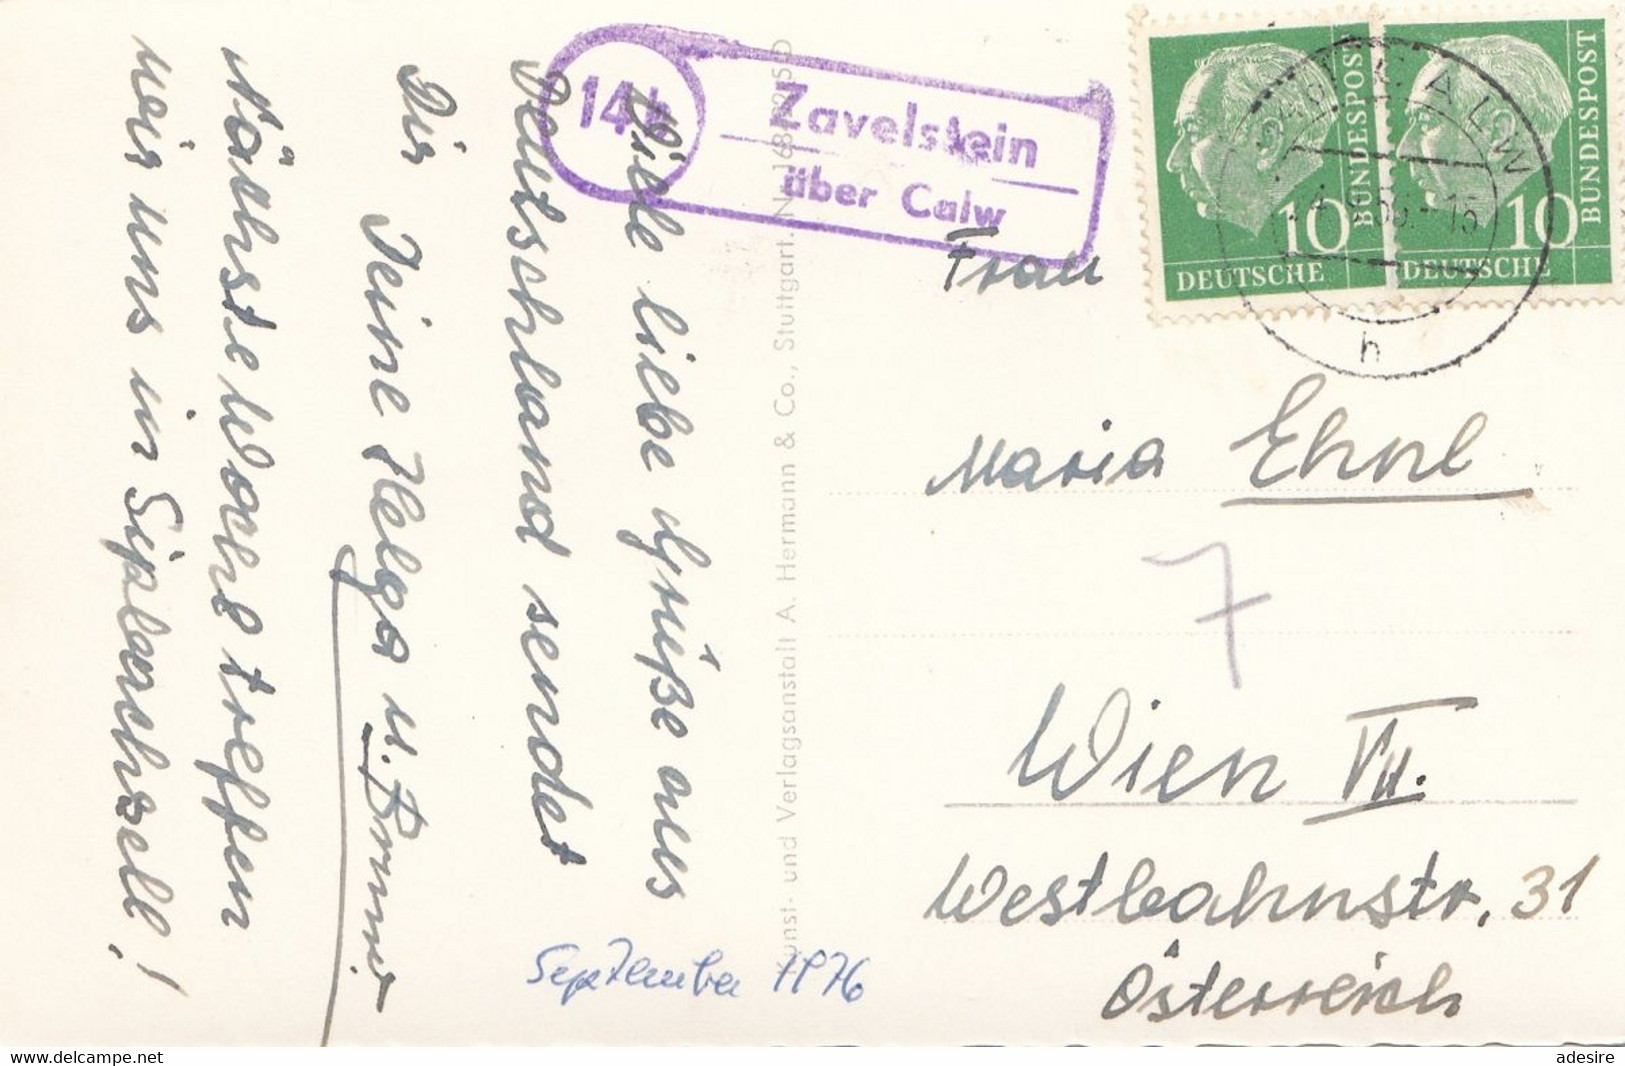 14b
Zavelstein
über Calw
DEUTSCHE
BUNDESPOST
10
DEUTSCHE
BUNDESPOST
10
CALW
h
Viele liebe Grüße aus
Deutschland sendet
Dir
Deine Helga u.
Nächste Woche treffen
wir uns in
September 1976
Kunst- und Verlagsanstalt A. Hermann & Co., Stuttgart.
Frau
Maria Ehnl
7
Wien VII.
Westbahnstr. 31
Österreich
www.delcampe.net
adesire